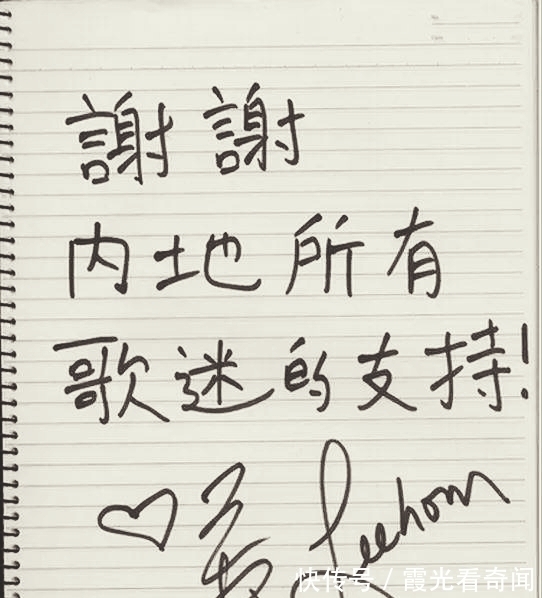 謝謝
内地所有
歌迷的支持!
Leehom
快传号 / 霞光看奇闻